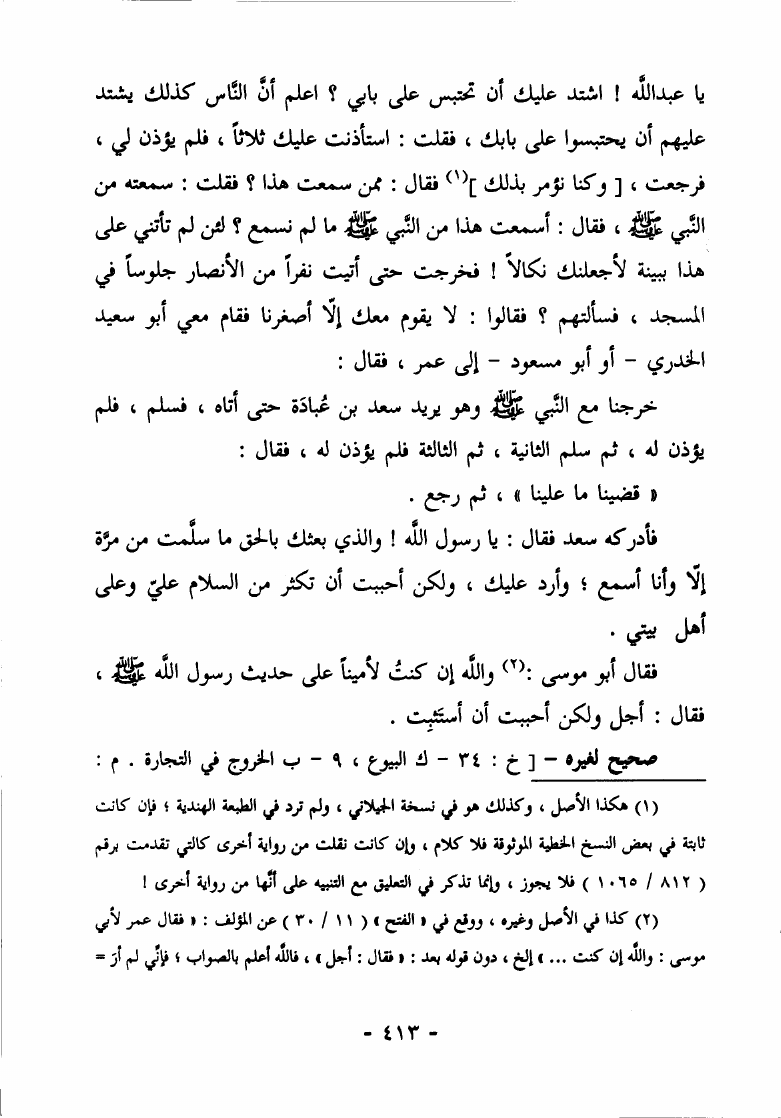 يا عبدالله ! اشتد عليك أن تحتبس على بابي ؟ اعلم أنَّ النَّاس كذلك يشتد
عليهم أن يحتبسوا على بابك ، فقلت : استأذنت عليك ثلاثاً ، فلم يؤذن لي ،
فرجعت ، [ وكنا نؤمر بذلك ](١) فقال : ممن سمعت هذا ؟ فقلت : سمعته من
النَّبي ﷺ ، فقال : أسمعت هذا من النَّبي ﷺ ما لم نسمع ؟ لئن لم تأتني على
هذا ببينة لأجعلنك نكالاً ! فخرجت حتى أتيت نفراً من الأنصار جلوساً في
المسجد ، فسألتهم ؟ فقالوا : لا يقوم معك إلّا أصغرنا فقام معي أبو سعيد
الخدري - أو أبو مسعود - إلى عمر ، فقال :
خرجنا مع النَّبي ﷺ وهو يريد سعد بن عُبادَة حتى أتاه ، فسلم ، فلم
يؤذن له ، ثم سلم الثانية ، ثم الثالثة فلم يؤذن له ، فقال :
« قضينا ما علينا » ، ثم رجع .
فأدركه سعد فقال : يا رسول الله ! والذي بعثك بالحق ما سلَّمت من مرَّة
إلّا وأنا أسمع ؛ وأرد عليك ، ولكن أحببت أن تكثر من السلام عليّ وعلى
أهل بيتي .
فقال أبو موسى :(٢) والله إن كنتُ لأميناً على حديث رسول الله ﷺ ،
فقال : أجل ولكن أحببت أن أستَثبِت .
صحيح لغيره - [ خ : ٣٤ - ك البيوع ، ٩ - ب الخروج في التجارة . م :
(١) هكذا الأصل ، وكذلك هو في نسخة الجيلاني ، ولم ترد في الطبعة الهندية ؛ فإن كانت
ثابتة في بعض النسخ الخطية الموثوقة فلا كلام ، وإن كانت نقلت من رواية أخرى كالتي تقدمت برقم
( ٨١٢ / ١٠٦٥ ) فلا يجوز ، وإنما تذكر في التعليق مع التنبيه على أنَّها من رواية أخرى !
(٢) كذا في الأصل وغيره ، ووقع في « الفتح » ( ١١ / ٣٠ ) عن المؤلف : « فقال عمر لأبي
موسى : والله إن كنت ... » إلخ ، دون قوله بعد : « فقال : أجل » ، فالله أعلم بالصواب ؛ فإنّي لم أرَ =
- ٤١٣ -